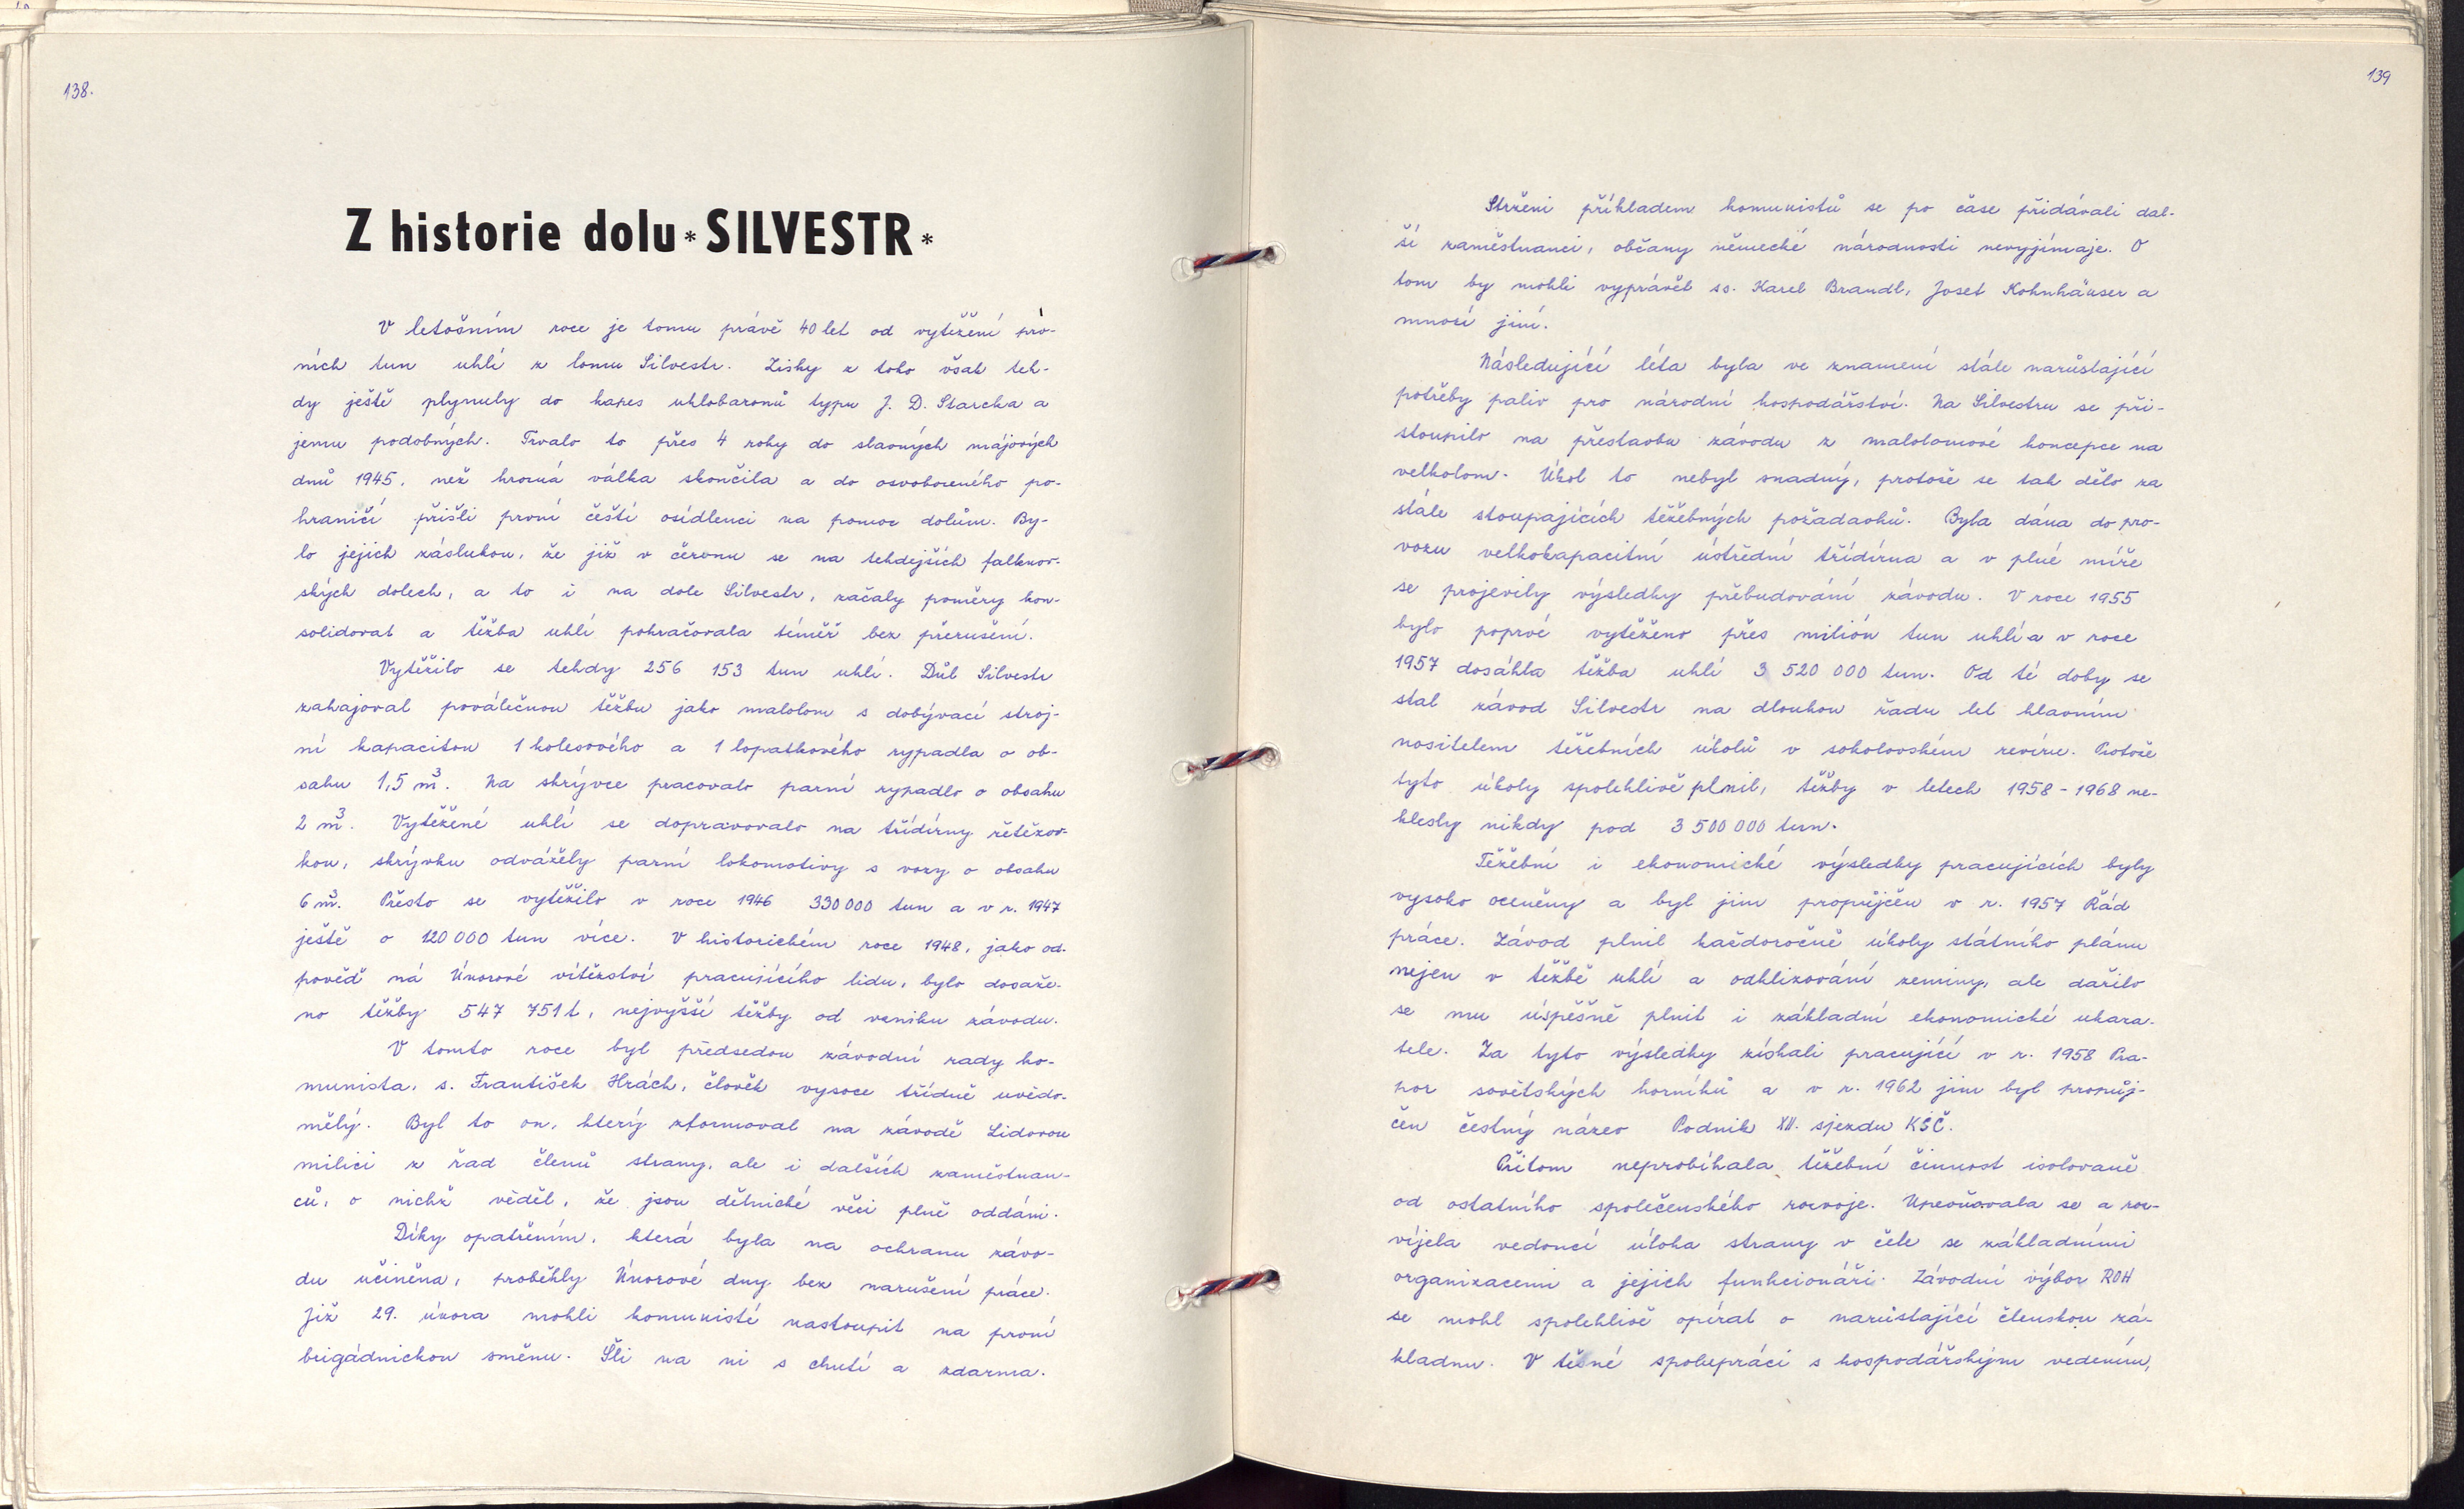 138.
Z historie dolu * SILVESTR *
V letošním roce je tomu právě 40 let od vytěžení prv-
ních tun uhlí z lomu Silvestr. Zisky z toho však teh-
dy ještě plynuly do kapes uhlobaronů typu J. D. Starcka a
jemu podobných. Trvalo to přes 4 roky do slavných májových
dnů 1945, než hrozná válka skončila a do osvobozeného po-
hraničí přišli první čeští osídlenci na pomoc dolům. By-
lo jejich zásluhou, že již v červnu se na tehdejších falknov-
ských dolech, a to i na dole Silvestr, začaly poměry kon-
solidovat a těžba uhlí pokračovala téměř bez přerušení.
Vytěžilo se tehdy 256 153 tun uhlí. Důl Silvestr
zahajoval poválečnou těžbu jako malolom s dobývací stroj-
ní kapacitou 1 kolesového a 1 lopatkového rypadla o ob-
sahu 1,5 m³. Na skrývce pracovalo parní rypadlo o obsahu
2 m³. Vytěžené uhlí se dopravovalo na třídírny řetězov-
kou, skrývku odvážely parní lokomotivy s vozy o obsahu
6 m³. Přesto se vytěžilo v roce 1946 330 000 tun a v r. 1947
ještě o 120 000 tun více. V historickém roce 1948, jako od-
pověď ná Únorové vítězství pracujícího lidu, bylo dosaže-
no těžby 547 751 t, nejvyšší těžby od vzniku závodu.
V tomto roce byl předsedou závodní rady ko-
munista, s. František Hrách, člověk vysoce třídně uvědo-
mělý. Byl to on, který zformoval na závodě Lidovou
milici z řad členů strany, ale i dalších zaměstnan-
ců, o nichž věděl, že jsou dělnické věci plně oddáni.
Díky opatřením, která byla na ochranu závo-
du učiněna, proběhly Únorové dny bez narušení práce.
Již 29. února mohli komunisté nastoupit na první
brigádnickou směnu. Šli na ni s chutí a zdarma.
139
Strženi příkladem komunistů se po čase přidávali dal-
ší zaměstnanci, občany německé národnosti nevyjímaje. O
tom by mohli vyprávět ss. Karel Brandl, Josef Kohnhäuser a
mnozí jiní.
Následující léta byla ve znamení stále narůstající
potřeby paliv pro národní hospodářství. Na Silvestru se při-
stoupilo na přestavbu závodu z malolomové koncepce na
velkolom. Úkol to nebyl snadný, protože se tak dělo za
stále stoupajících těžebných požadavků. Byla dána do pro-
vozu velkokapacitní ústřední třídírna a v plné míře
se projevily výsledky přebudování závodu. V roce 1955
bylo poprvé vytěženo přes milión tun uhlí a v roce
1957 dosáhla těžba uhlí 3 520 000 tun. Od té doby se
stal závod Silvestr na dlouhou řadu let hlavním
nositelem těžebních úkolů v sokolovském revíru. Protože
tyto úkoly spolehlivě plnil, těžby v letech 1958 - 1968 ne-
klesly nikdy pod 3 500 000 tun.
Těžební i ekonomické výsledky pracujících byly
vysoko oceněny a byl jim propůjčen v r. 1957 Řád
práce. Závod plnil každoročně úkoly státního plánu
nejen v těžbě uhlí a odklizování zeminy, ale dařilo
se mu úspěšně plnit i základní ekonomické ukaza-
tele. Za tyto výsledky získali pracující v r. 1958 Pra-
por sovětských horníků a v r. 1962 jim byl propůj-
čen čestný název Podnik XII. sjezdu KSČ.
Přitom neprobíhala těžební činnost isolovaně
od ostatního společenského rozvoje. Upevňovala se a roz-
víjela vedoucí úloha strany v čele se základními
organizacemi a jejich funkcionáři. Závodní výbor ROH
se mohl spolehlivě opírat o narůstající členskou zá-
kladnu. V těsné spolupráci s hospodářským vedením,